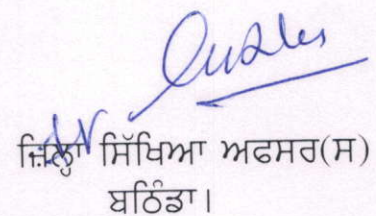 ਜ਼ਿਲ੍ਹਾ ਸਿੱਖਿਆ ਅਫਸਰ(ਸ)
ਬਠਿੰਡਾ।